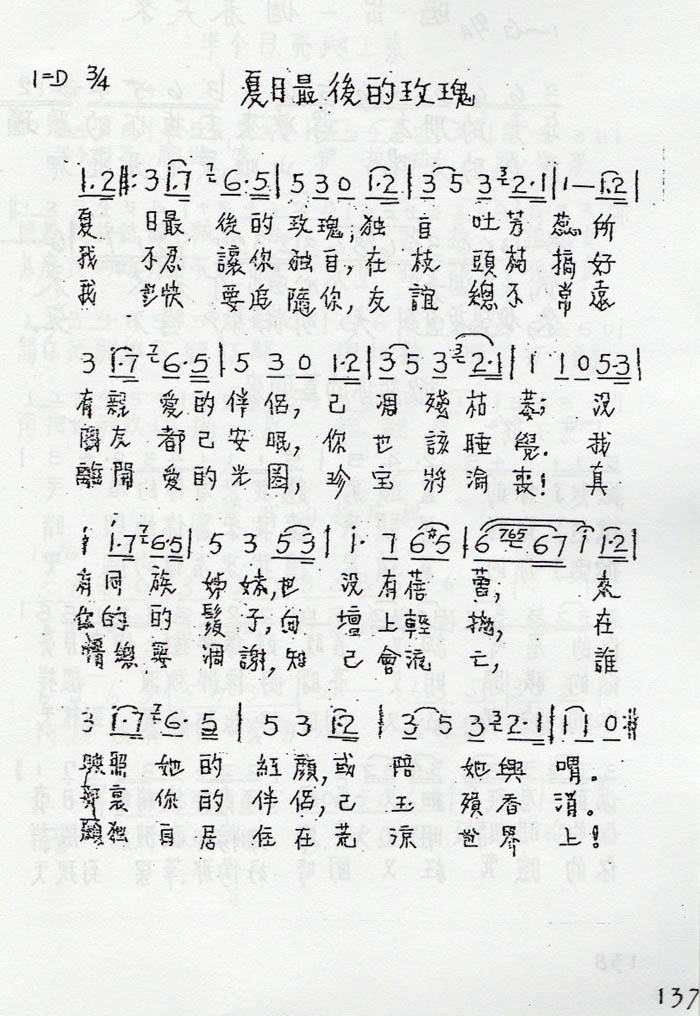 1=D 3/4
夏日最後的玫瑰
1·2‖: 3 1·7 6·5 | 5 3 0 1·2 | 3 5 3 2·1 | 1 — 1·2 |
夏 日最 後的 玫瑰; 独 自 吐芳 蕊 所
我 不忍 讓你 独自, 在 枝 頭枯 搞 好
我 快 要追 隨你, 友 誼 總不 常 遠
3 1·7 6·5 | 5 3 0 1·2 | 3 5 3 2·1 | 1 1 0 5·3 |
有親 愛的 伴侶, 已 凋 殘枯 萎; 没
朋友 都已 安眠, 你 也 該睡 覺. 我
離開 愛的 光圈, 珍 宝 將淪 喪! 真
i 1·7 6·5 | 5 3 5 3 | 1· 7 6 #5 | 6 765 6 7 i 1·2 |
有同 族 姊妹, 也 没有蓓 蕾, 來
你的 的 髮子, 向 壇上輕 拋, 在
情戀 要 凋謝, 知 己會流 亡, 誰
3 1·7 6·5 | 5 3 1·2 | 3 5 3 2·1 | 1 1 0 :‖
映照 她的 紅顏, 或 陪 她興 喟。
你的 伴侶, 已 玉 殞香 消。
願独 自居 住在 荒 涼 世界 上!
137